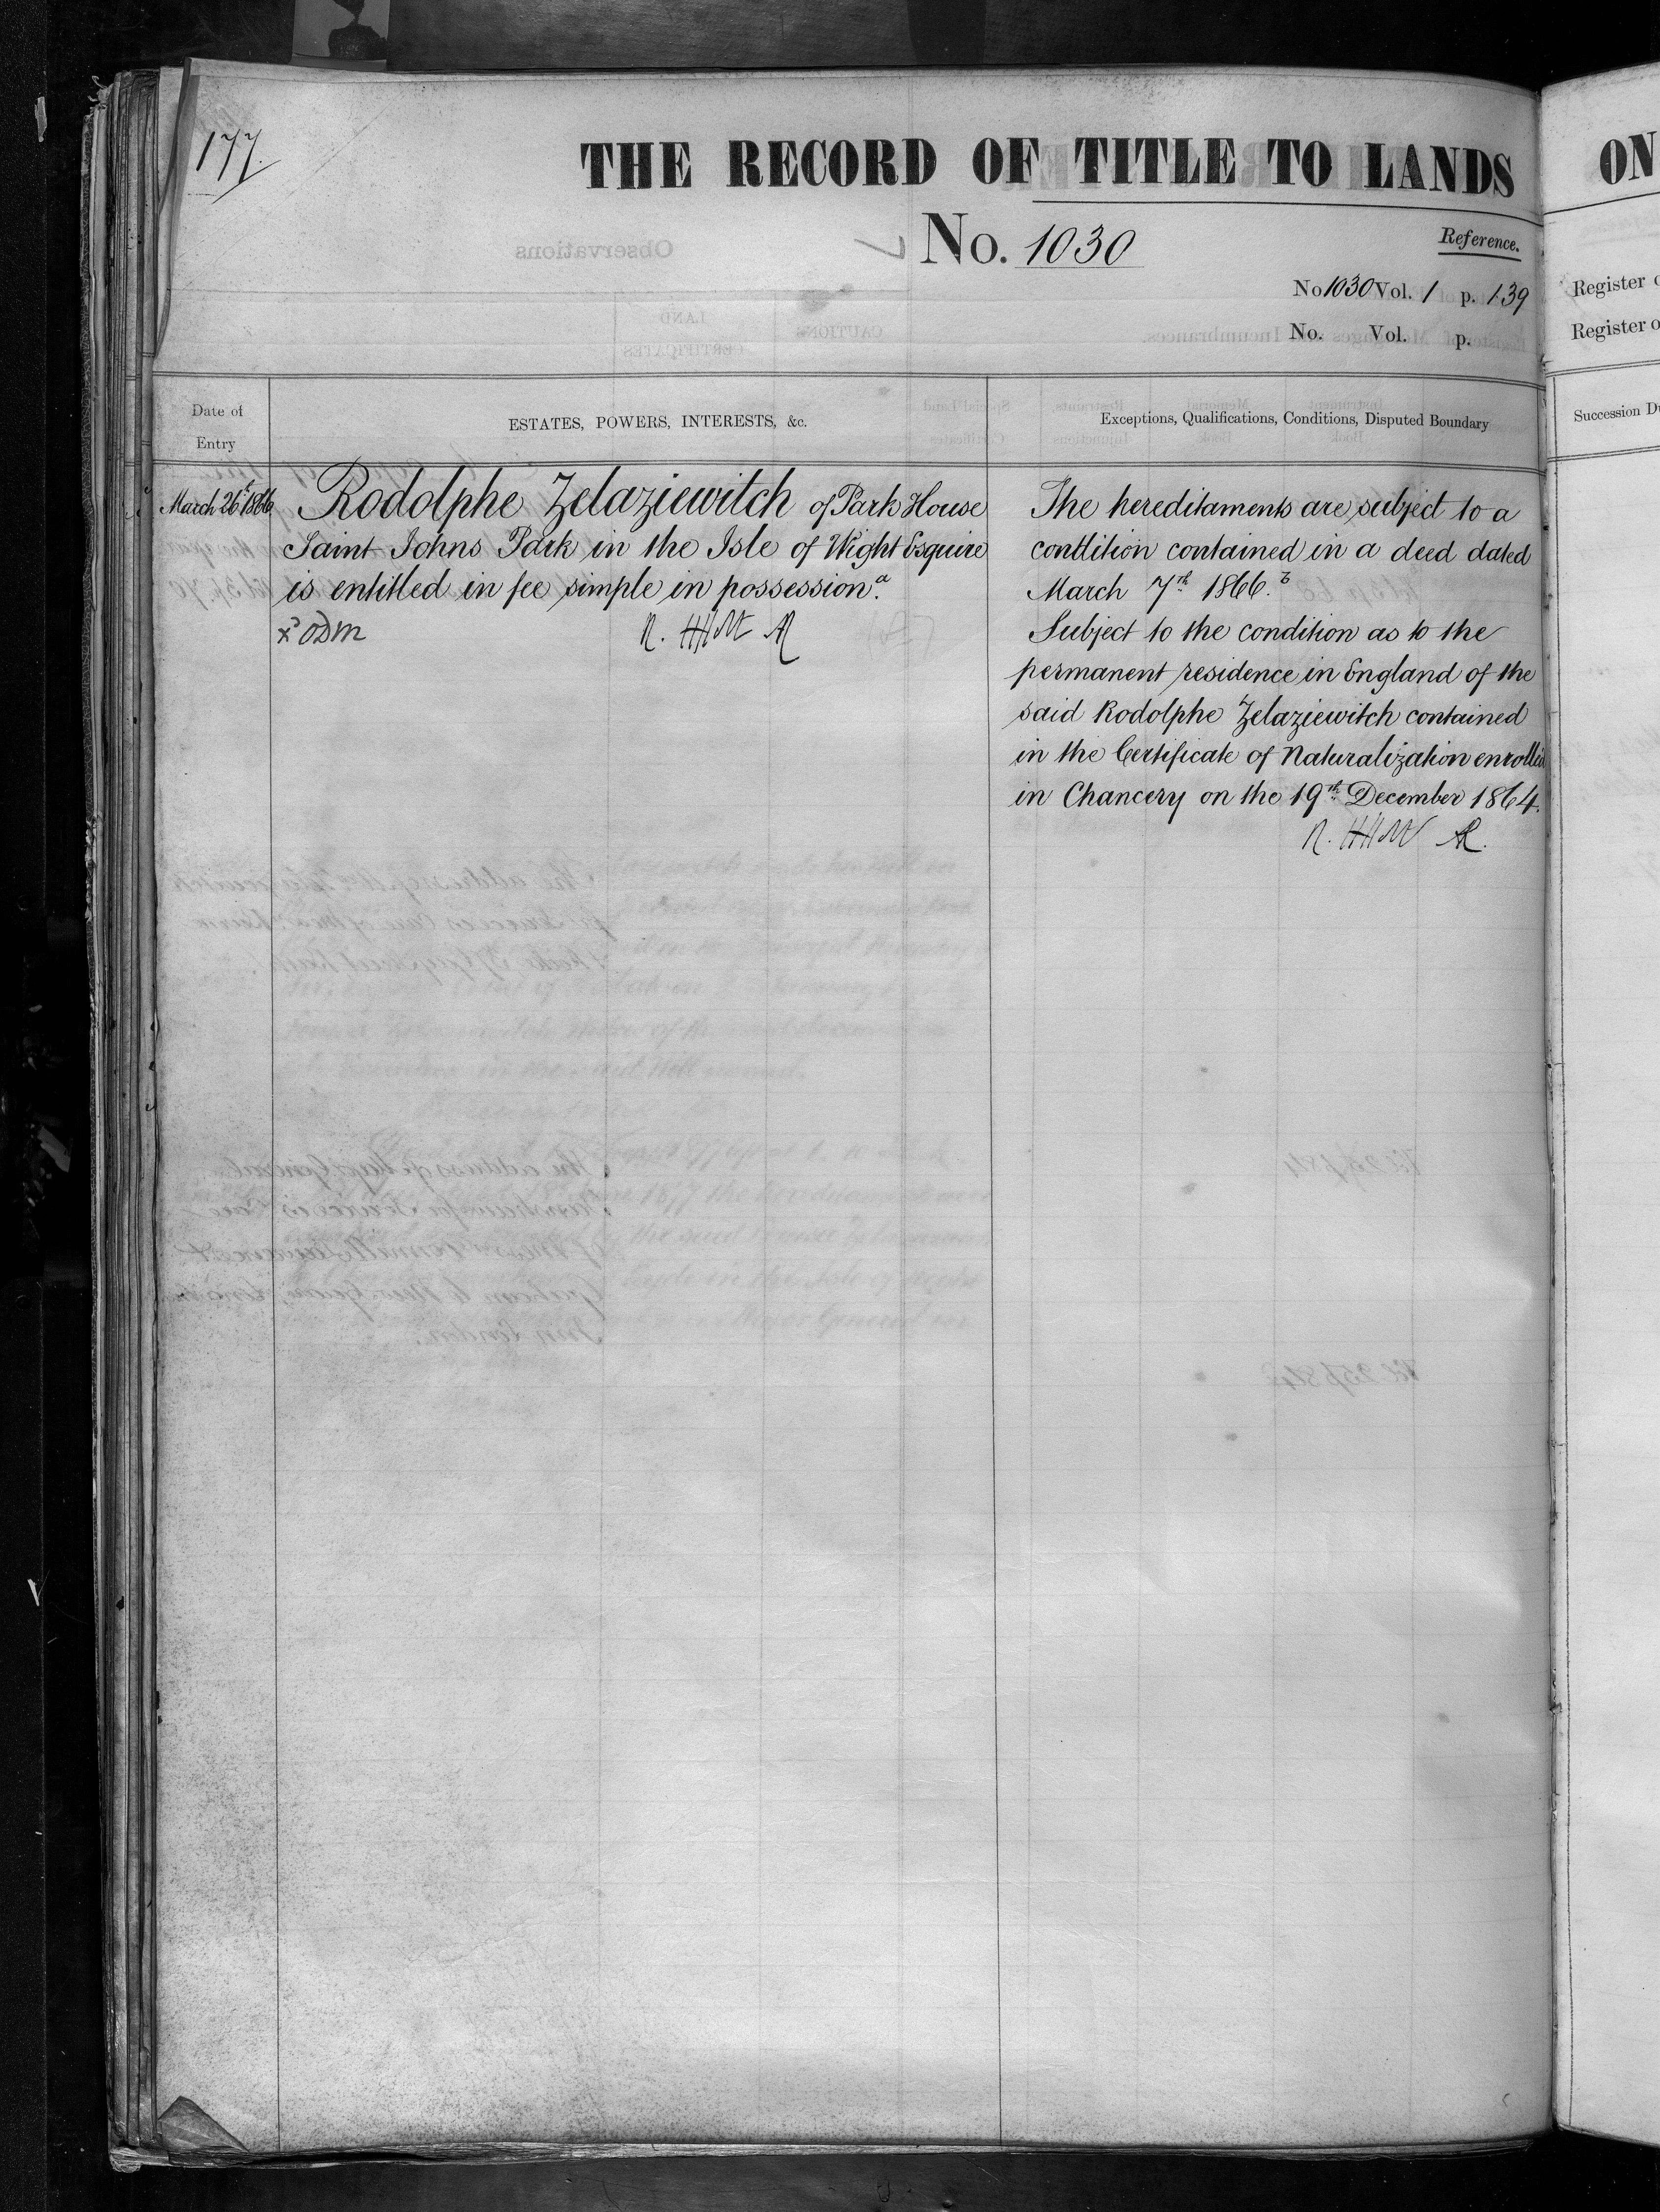 177.
THE RECORD OF TITLE TO LANDS
No. 1030
Reference.
No 1030 Vol. 1 p. 139
No. Vol. p.
Date of Entry
ESTATES, POWERS, INTERESTS, &c.
Exceptions, Qualifications, Conditions, Disputed Boundary
March 26 1866
Rodolphe Zelaziewitch of Park House
Saint Johns Park in the Isle of Wight Esquire
is entitled in fee simple in possession.a
The hereditaments are subject to a
condition contained in a deed dated
March 7th 1866.b
Subject to the condition as to the
permanent residence in England of the
said Rodolphe Zelaziewitch contained
in the Certificate of Naturalization enrolled
in Chancery on the 19th December 1864.
ON
Register
Register
Succession